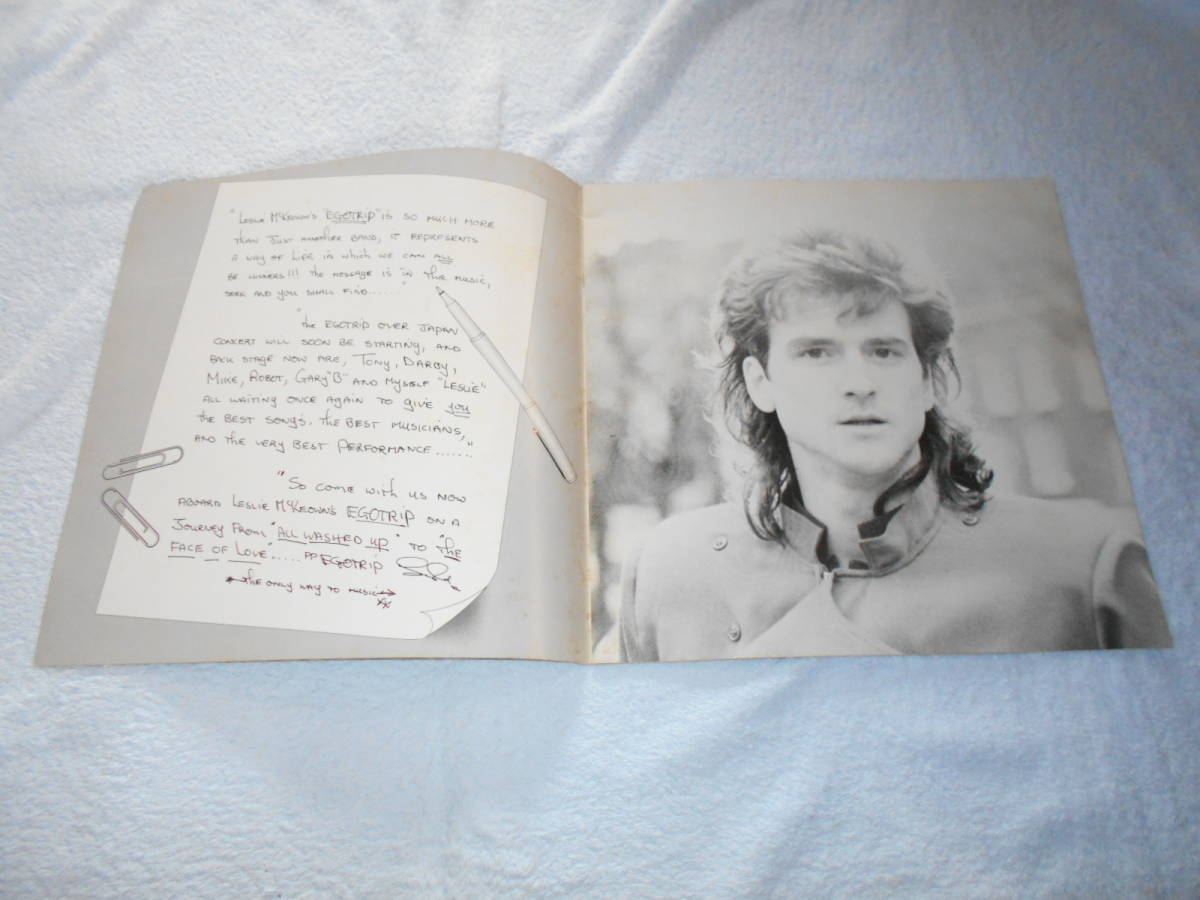 "Leslie McKeown's "EGOTRIP" is so much more
than just another band, it represents
a way of life in which we can all
be winners!!! The message is in the music,
seek and you shall find......"
"The EGOTRIP over Japan
concert will soon be starting, and
back stage now are, Tony, Darby,
Mike, Robot, Gary "B" and myself "Leslie"
all waiting once again to give you
the best songs, the best musicians,
and the very best performance......"
"So come with us now
aboard Leslie McKeown's EGOTRIP on a
journey from "ALL WASHED UP" to "The
FACE OF LOVE"..... EGOTRIP
the only way to music
xx